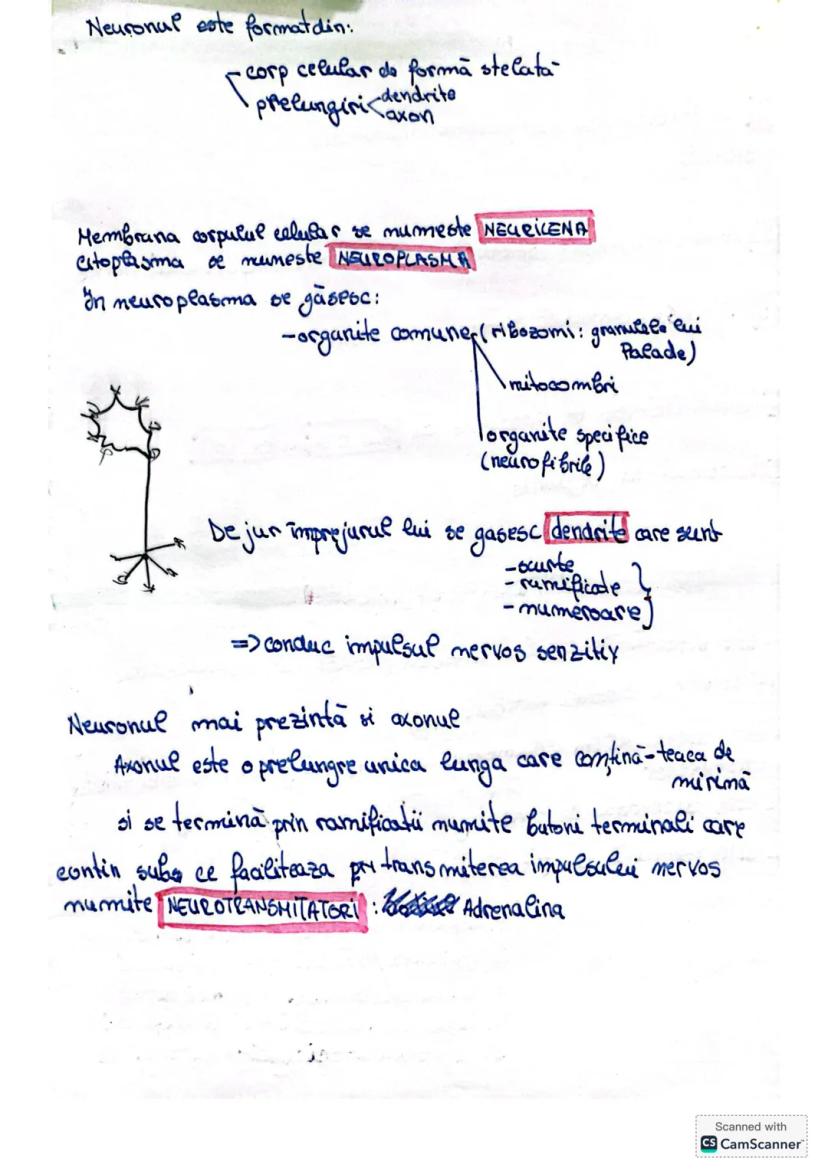 Neuronul este format din:
corp celular de formă stelată
prelungiri dendrite
axon
Membrana corpului celular se numeste NEURILENA
Citoplasma se numeste NEUROPLASMA
În neuroplasma se găsesc:
-organite comune (ribozomi: granulele lui
Palade)
mitocombri
organite specifice
(neurofibrile)
De jur împrejurul lui se gasesc dendrite care sunt
-scurte
-ramificate
-numeroare
=> conduc impulsul nervos senzitiv
Neuronul mai prezintă si axonul
Axonul este o prelungre unica lunga care conțină-teaca de
mirimă
si se termină prin ramificatii numite butoni terminali care
contin subs ce faciliteaza transmiterea impulsului nervos
numite NEUROTRANSMITATORI: Adrenalina
Scanned with
CS CamScanner